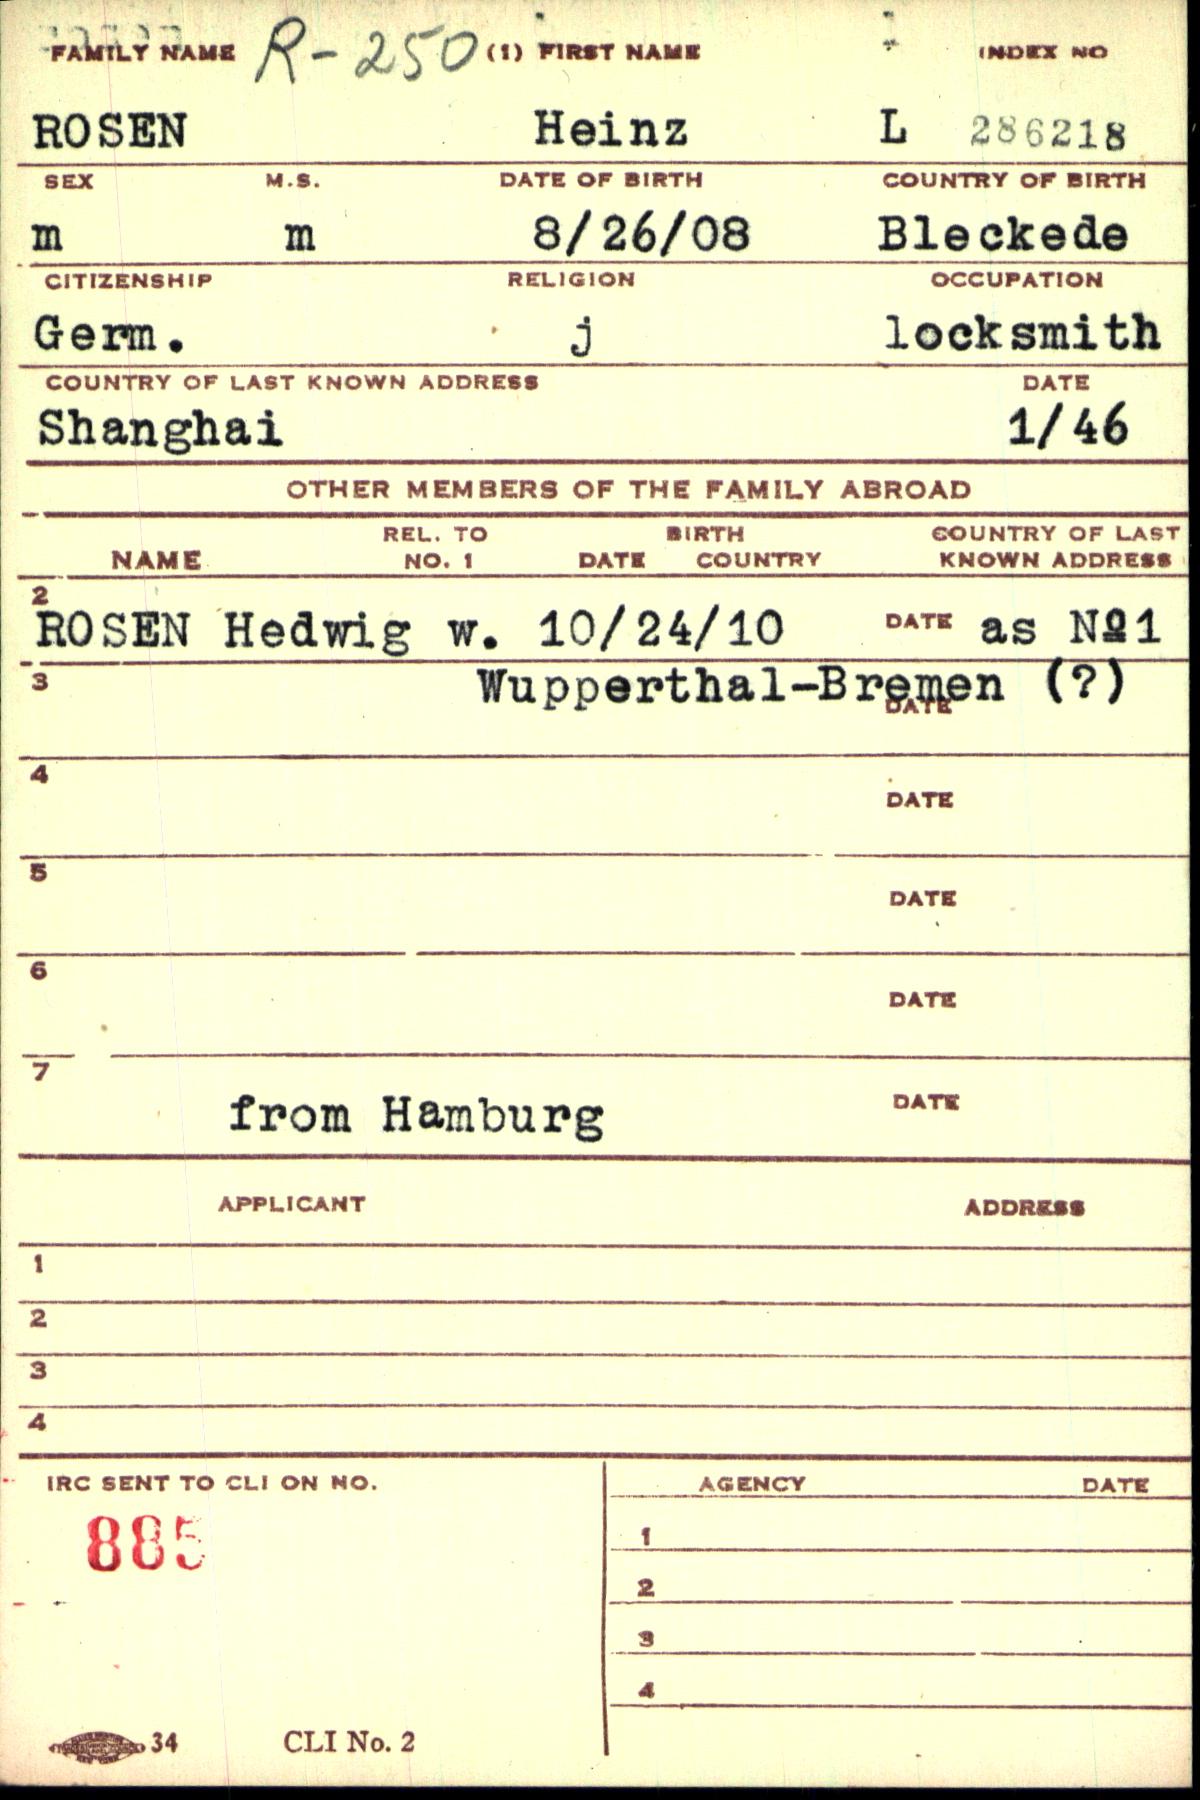 FAMILY NAME R-250 (1) FIRST NAME INDEX NO
ROSEN Heinz L 286218
SEX M.S. DATE OF BIRTH COUNTRY OF BIRTH
m m 8/26/08 Bleckede
CITIZENSHIP RELIGION OCCUPATION
Germ. j locksmith
COUNTRY OF LAST KNOWN ADDRESS DATE
Shanghai 1/46
OTHER MEMBERS OF THE FAMILY ABROAD
REL. TO BIRTH COUNTRY OF LAST
NAME NO. 1 DATE COUNTRY KNOWN ADDRESS
2
ROSEN Hedwig w. 10/24/10 DATE as №1
3 Wupperthal-Bremen (?)
DATE
4
DATE
5
DATE
6
DATE
7
from Hamburg DATE
APPLICANT ADDRESS
1
2
3
4
IRC SENT TO CLI ON NO. AGENCY DATE
885
1
2
3
4
34 CLI No. 2